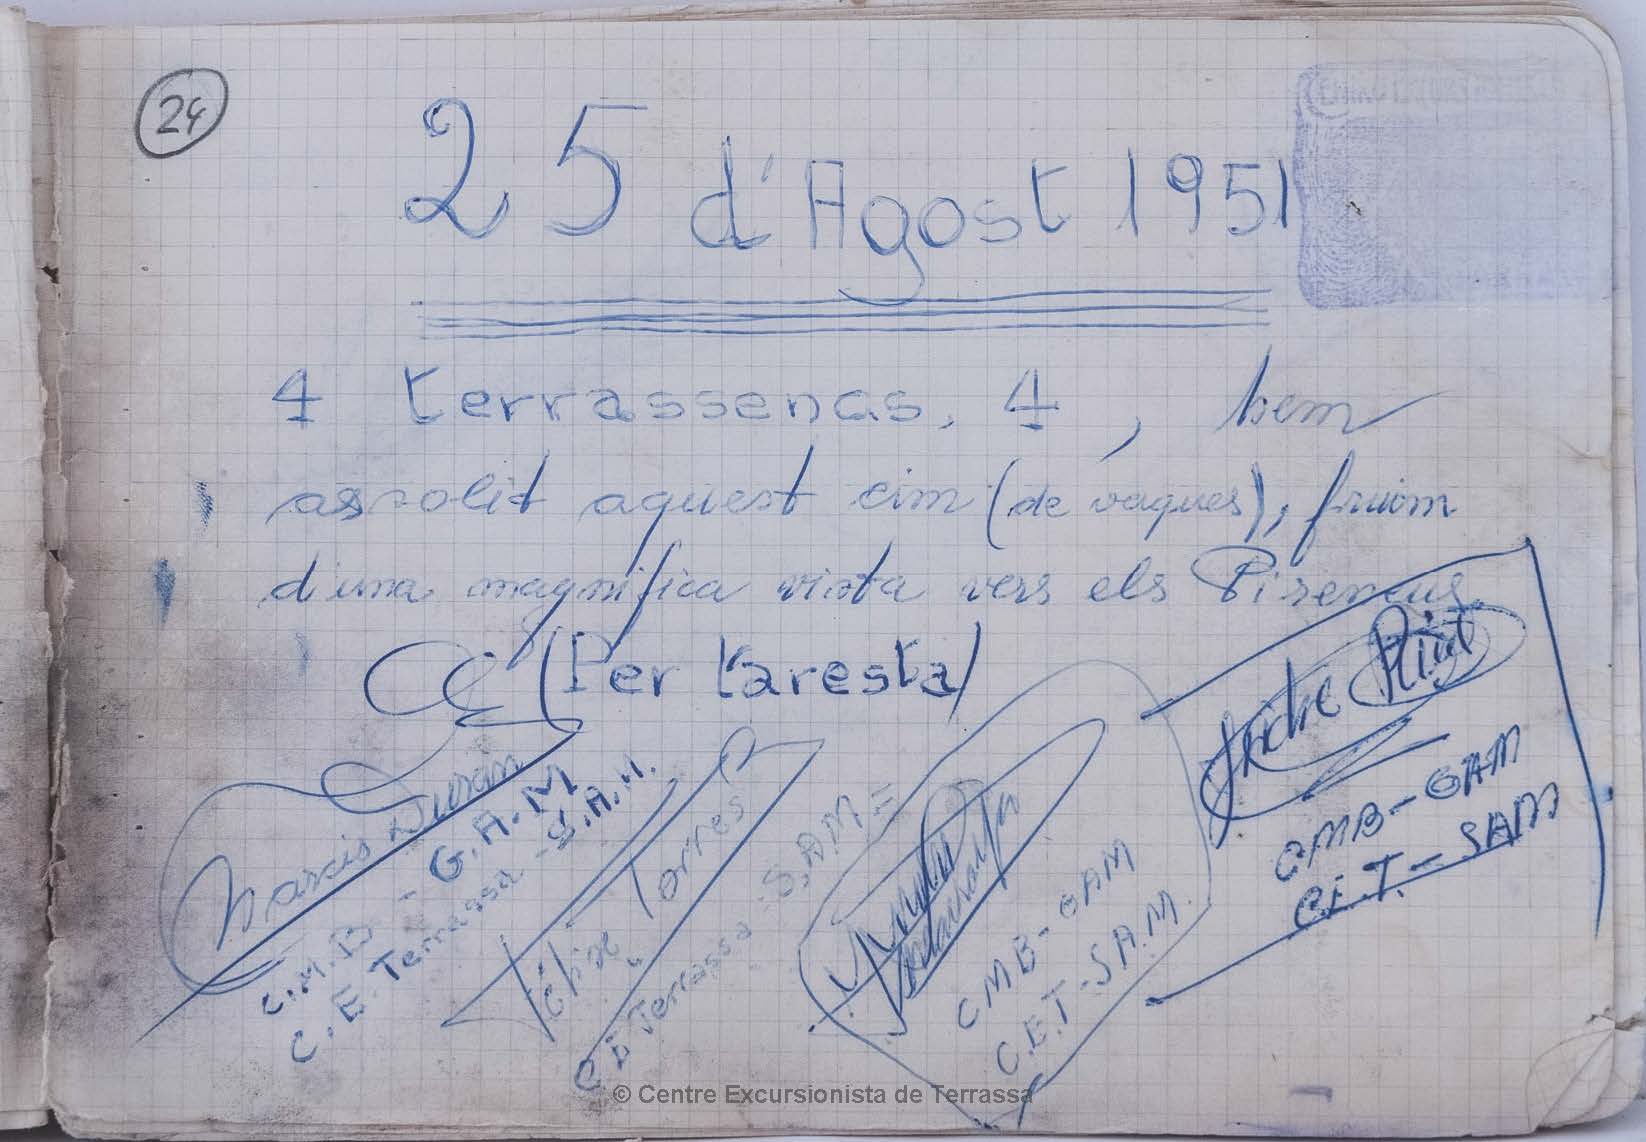 24
25 d'Agost 1951
4 terrassencs, 4, hem
assolit aquest cim (de vaques), fruim
d'una magnifica vista vers els Pireneus
(Per l'aresta)
Narcis Duran
C.M.B - G.A.M
C.E. Terrassa - S.A.M.
Félix Torres
C E Terrassa - S.A.M
CMB - GAM
C.E.T - S.A.M.
CMB - GAM
C.E.T. - SAM
© Centre Excursionista de Terrassa